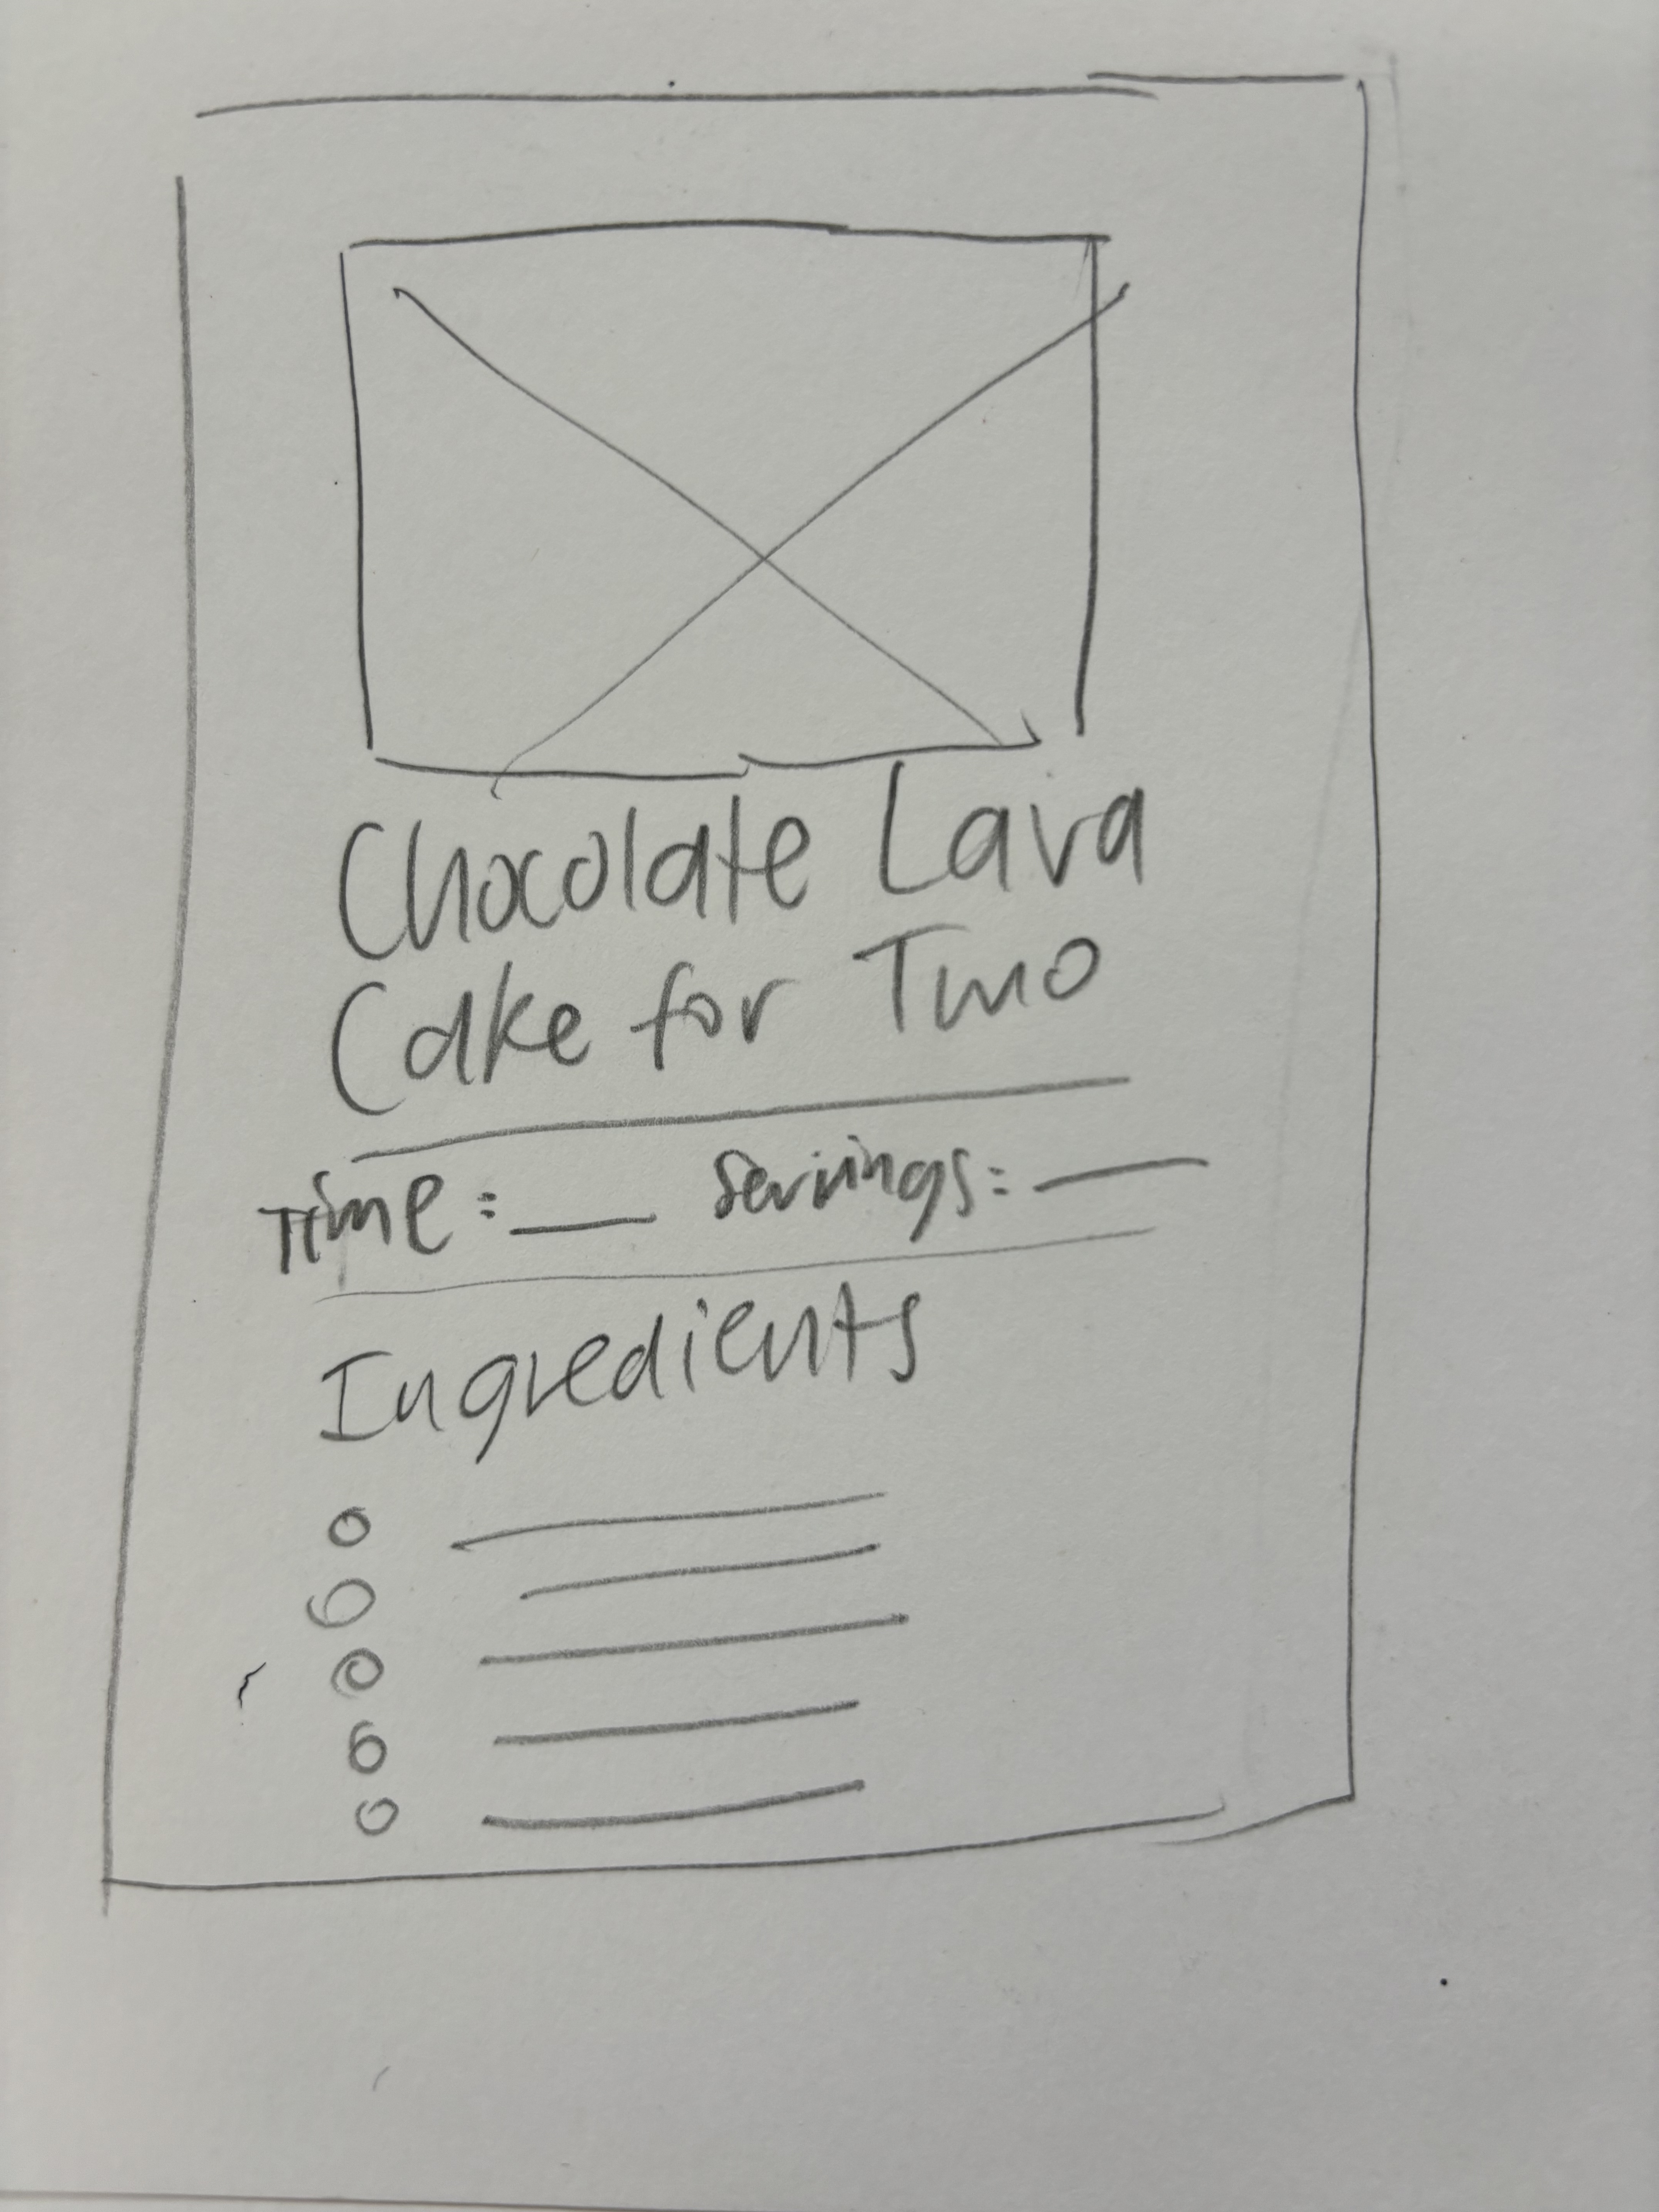 Chocolate Lava
Cake for Two
Time: __ Servings: __
Ingredients